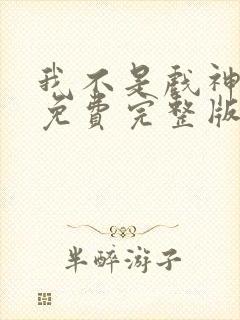 我不是戏神
免费完整版
半醉游子